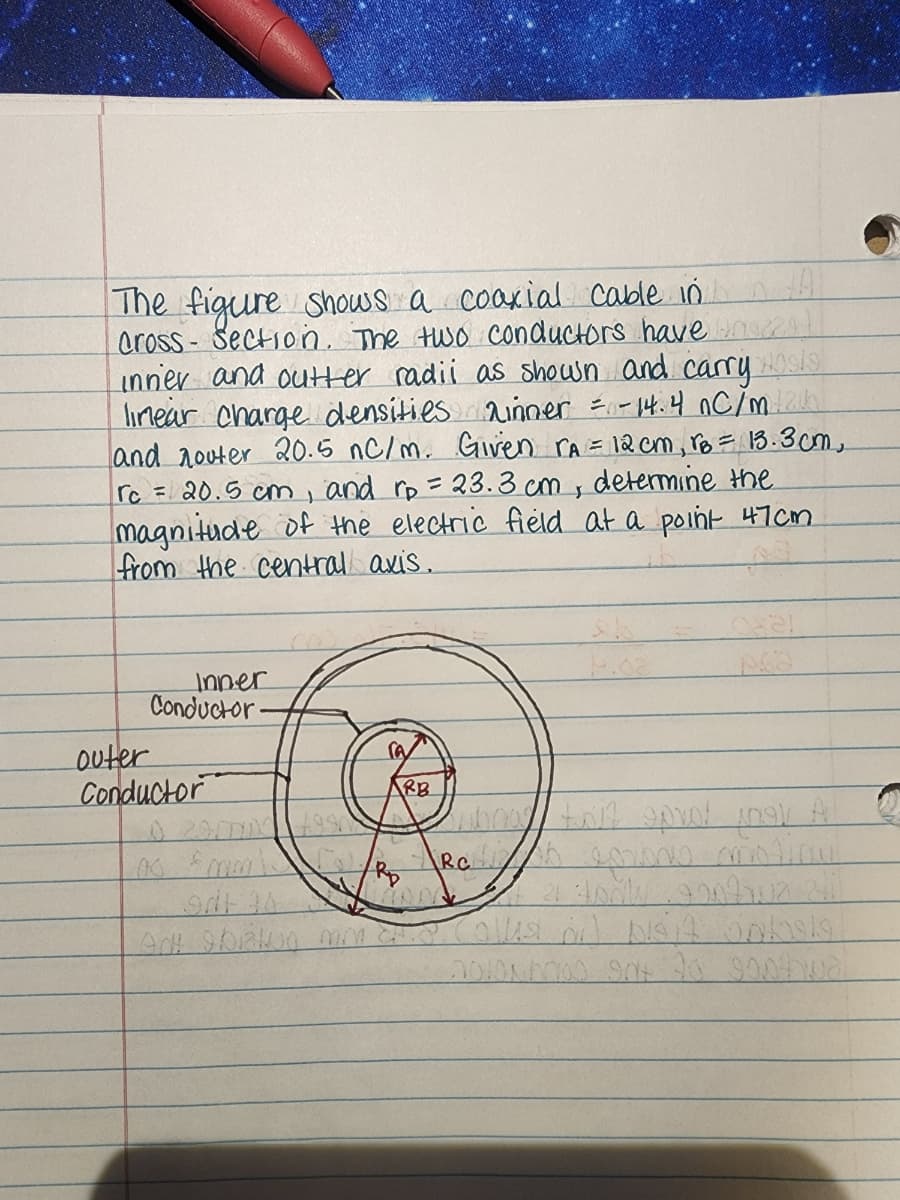 The figure shows a coaxial cable in
cross-section. The two conductors have
inner and outter radii as shown and carry
linear charge densities λinner = -14.4 nC/m
and λouter 20.5 nC/m. Given rA = 12 cm, rB = 13.3cm,
rc = 20.5 cm, and rD = 23.3 cm, determine the
magnitude of the electric field at a point 47cm
from the central axis.
Inner
Conductor
outer
Conductor
rA
RB
RD
RC